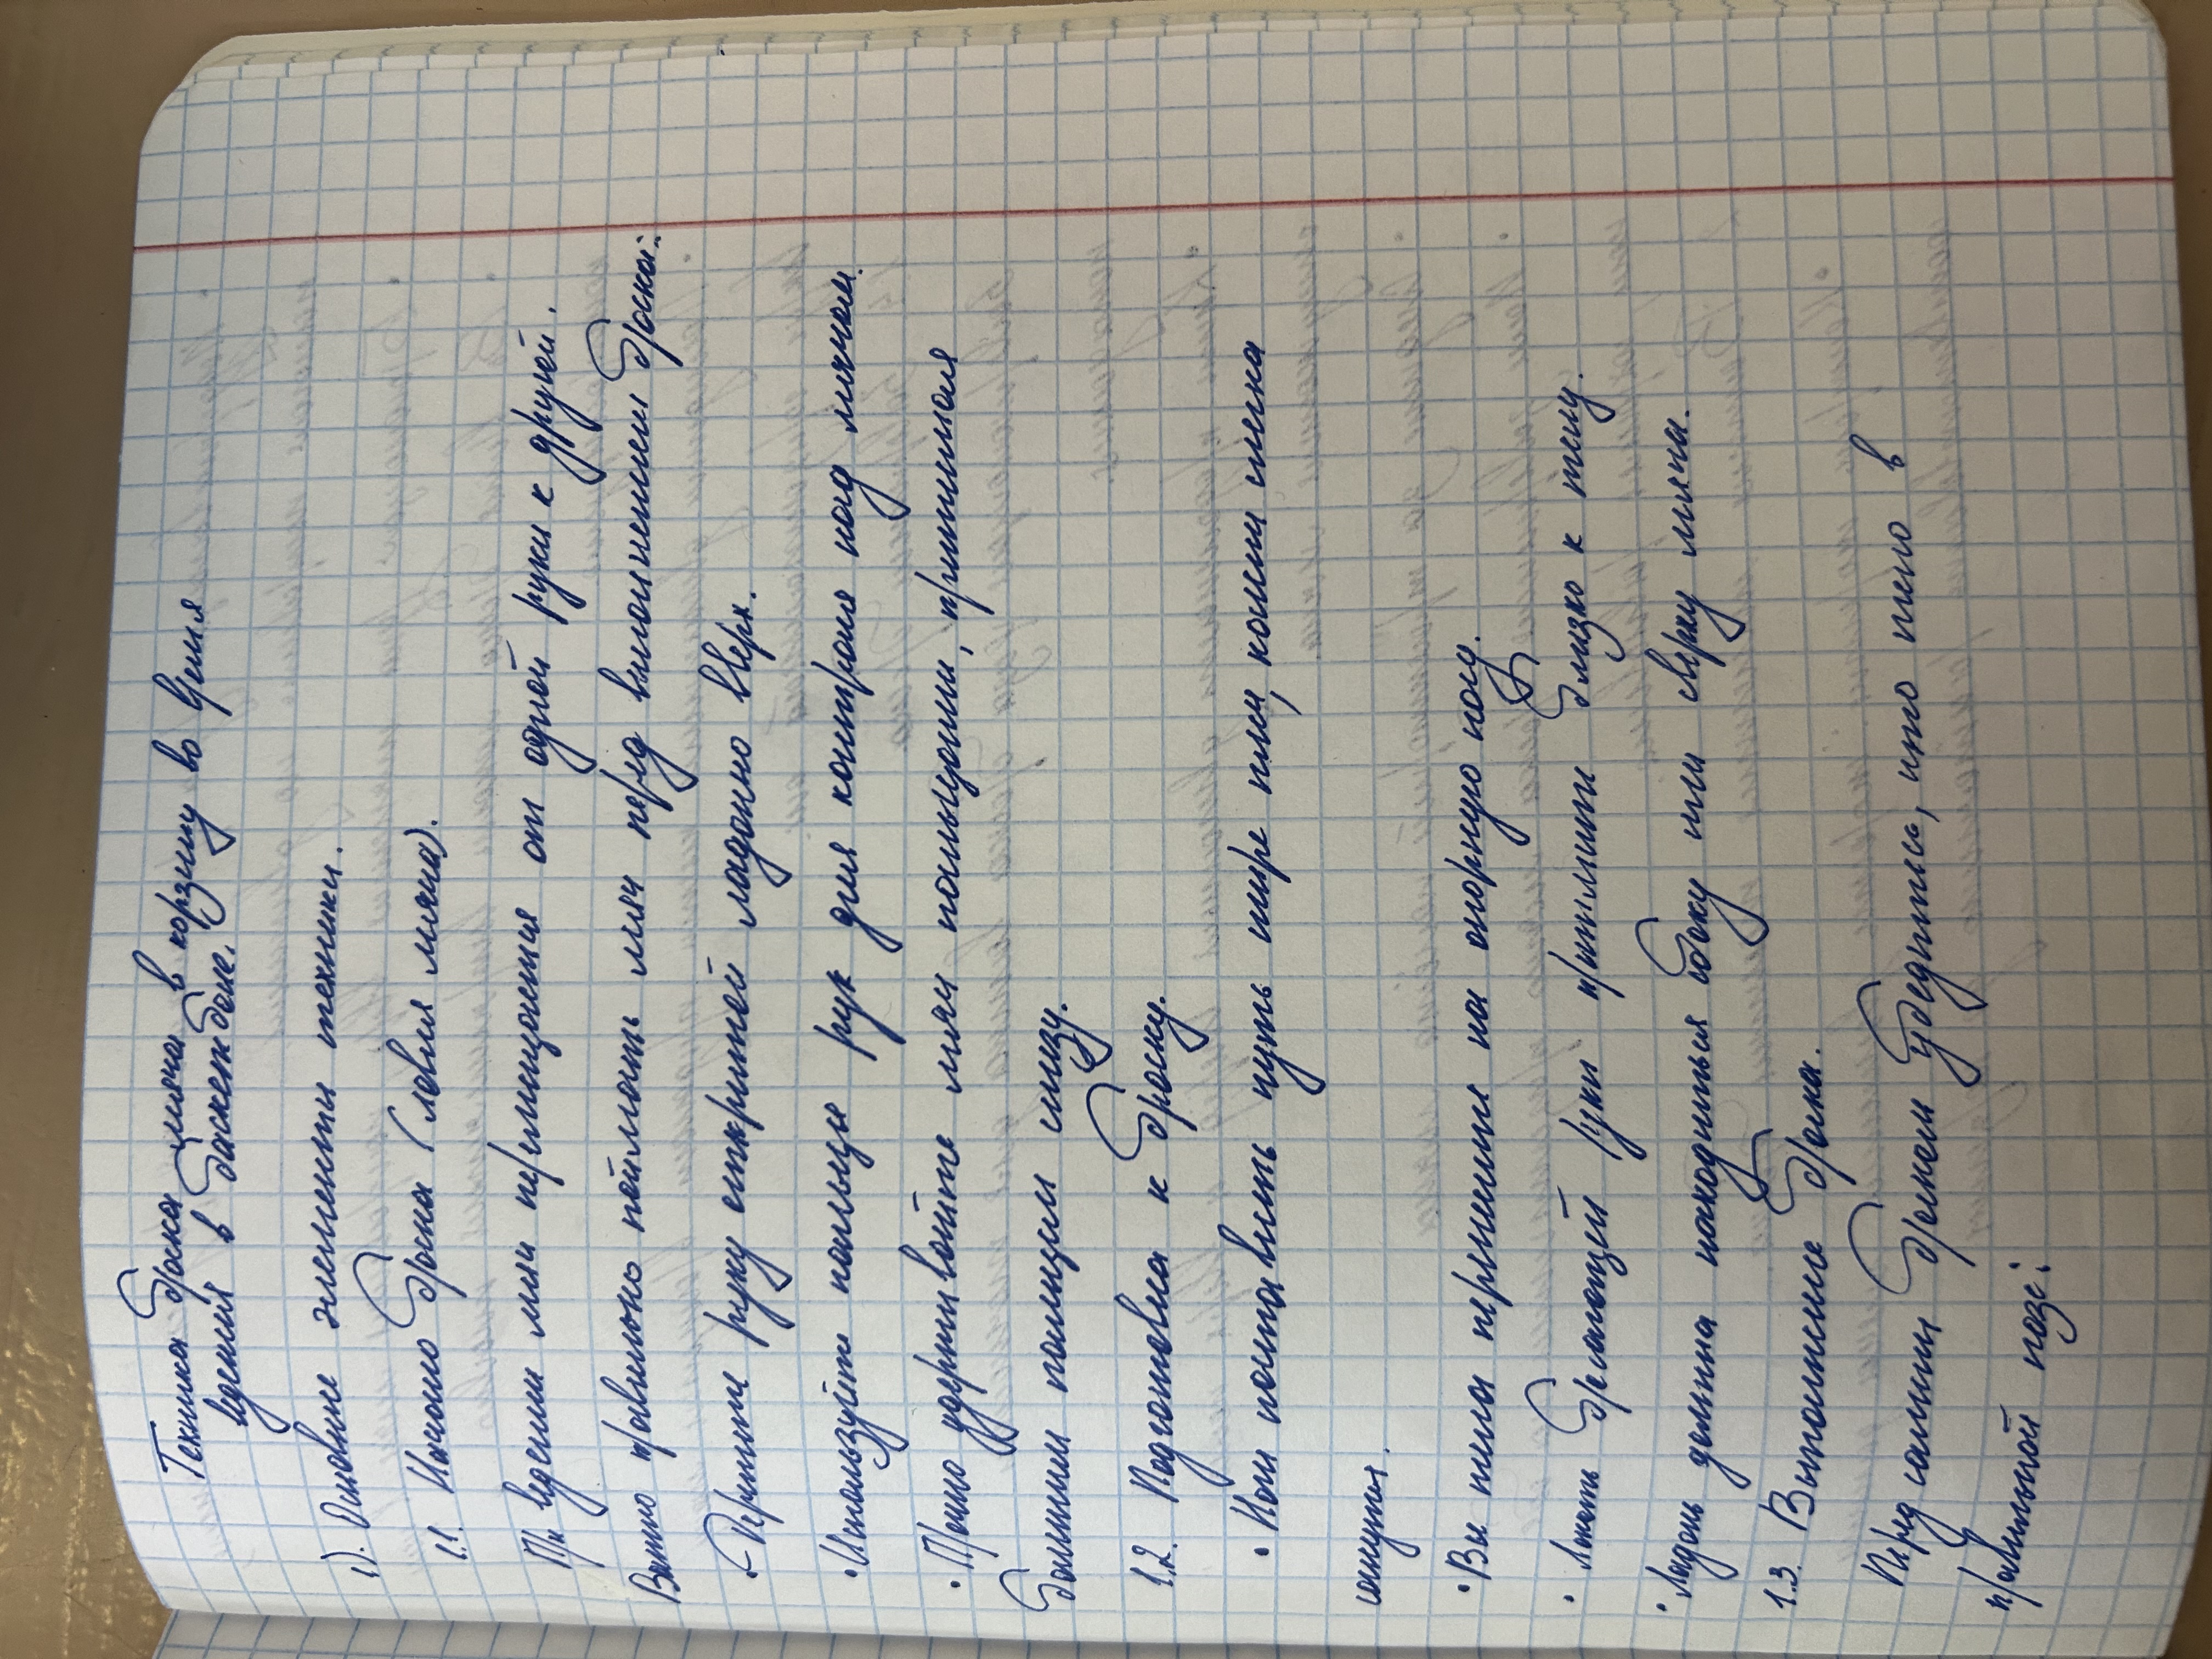 Техника броска мяча в корзину во время
ведения в баскетболе.
1). Основные элементы техники.
1.1. Начало броска (ловля мяча).
При ведении мяч перемещается от одной руки к другой.
Важно правильно поймать мяч перед выполнением броска:
- Держите руку открытой ладонью вверх.
• Используйте пальцы рук для контроля над мячом.
• Прочно удерживайте мяч пальцами, прижимая
большим пальцем снизу.
1.2. Подготовка к броску.
• Ноги поставьте чуть шире плеч, колени слегка
согнуты.
• Вес тела перенесите на опорную ногу.
• Локоть бросающей руки прижмите близко к телу.
• Ладонь должна находиться сбоку или сверху мяча.
1.3. Выполнение броска.
Перед самим броском убедитесь, что тело в
правильной позе: